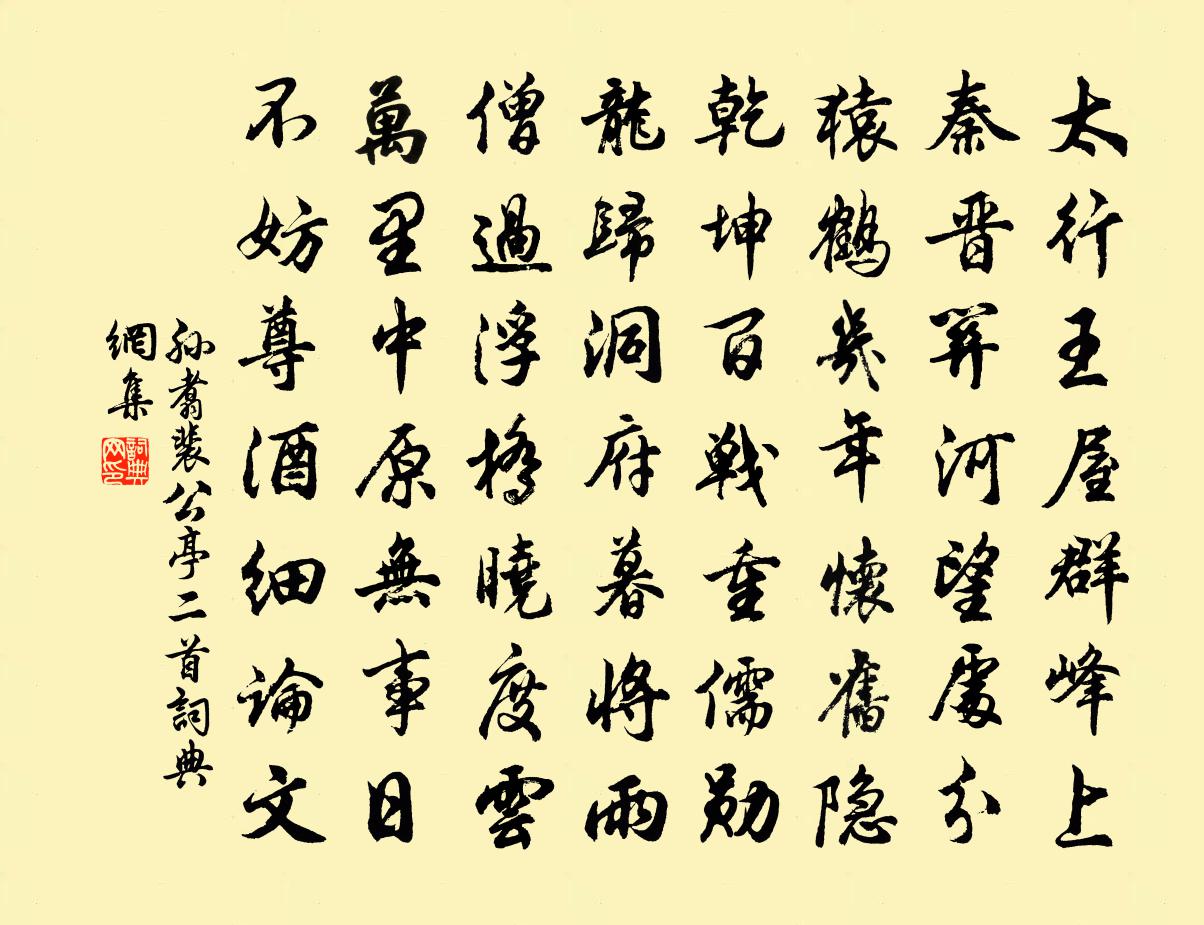 太行王屋群峰上
秦晋关河望處分
猿鶴幾年懷舊隐
乾坤百戰重儒勛
龍歸洞府暮將雨
僧過浮橋曉度雲
萬里中原無事日
不妨尊酒細論文
孙翥裴公亭二首詞典
網集
詞典
网印